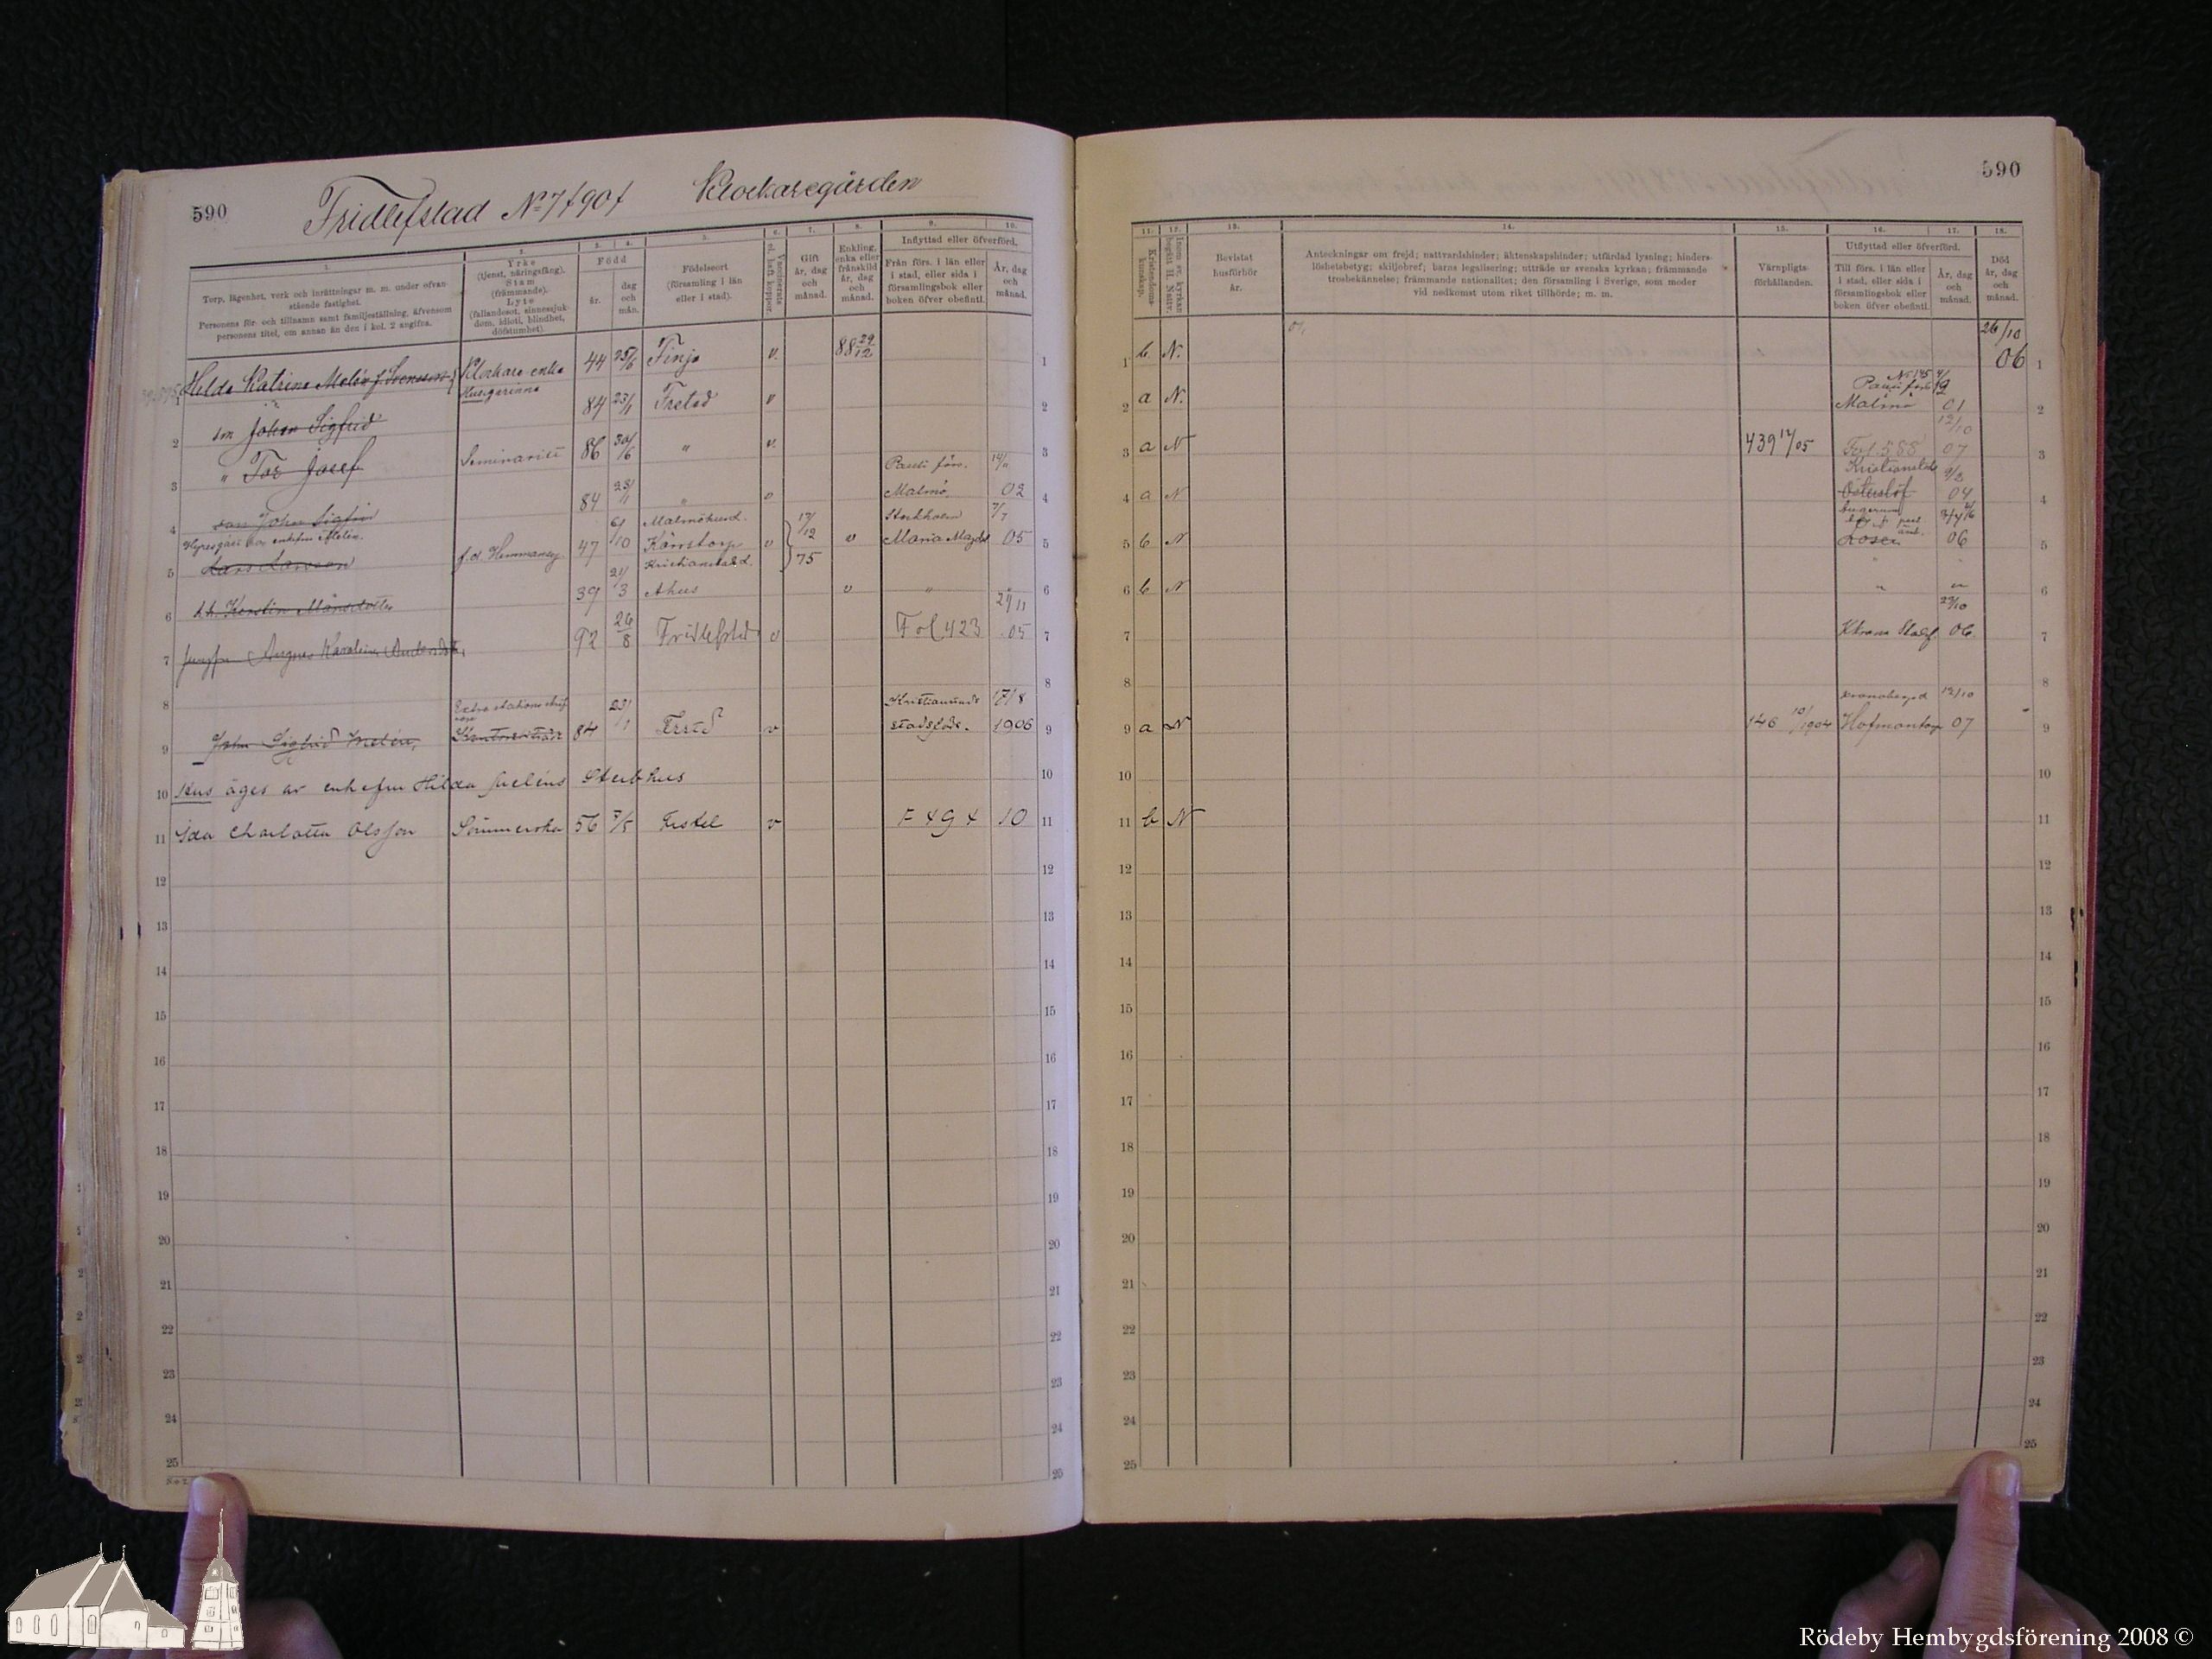 590
Fridlefstad № 7 / 901 Klockaregården
1.
Torp, lägenhet, verk och inrättningar m. m. under ofvanstående fastighet.
Personens för- och tillnamn samt familjeställning, äfvensom personens titel, om annan än den i kol. 2 angifna.
2.
Yrke
(tjenst, näringsfång).
Stam
(främmande).
Lyte
(fallandesot, sinnessjukdom, idioti, blindhet, döfstumhet).
3. 4.
Född
år.
dag och mån.
5.
Födelseort
(församling i län eller i stad).
6.
Vaccinerats el. haft koppor.
7.
Gift
år, dag och månad.
8.
Enkling, enka eller frånskild
år, dag och månad.
9. 10.
Inflyttad eller öfverförd.
Från förs. i län eller i stad, eller sida i församlingsbok eller boken öfver obefintl.
År, dag och månad.
1 Hilda Katrina Melén f. Svensson Klockare enka Husegarinna 44 25/6 Finja v. 88 29/12 1
2 son Johan Sigfrid 84 23/1 Frstad v 2
3 " Tor Josef Seminarist 86 30/6 " v. 3
4 son John Sigfrid 84 23/1 " v Pauli förs. Malmö 14/11 02 4
Hyresgäst hos enkefru Melén.
5 Lars Larsson f.d. Hemmanseg. 47 6/10 Malmöhus l. Kärrstorp v 17/12 75 v Stockholm Maria Magdal 7/7 05 5
6 h. Kerstin Månsdotter 39 21/3 Kristianstad l. Åhus v " " 6
7 Jungfru Agnes Karolina Andersdotter 92 26/8 Fridlefstad v Fol 423 29/11 05 7
8 8
9 John Sigfrid Melén, Extra stationsskrifvare 84 23/1 Frstd v Kristianstads stadsförs. 17/8 1906 9
10 Hus äges av enkefru Hilda Meléns Sterbhus 10
11 Ida Charlotta Olsson Sömmerska 56 7/5 v F 494 10 11
12 12
13 13
14 14
15 15
16 16
17 17
18 18
19 19
20 20
21 21
22 22
23 23
24 24
25 25
590
11.
Kristendomskunskap.
12.
Inom sv. kyrkan begått H. Nattv.
13.
Bevistat husförhör
år.
14.
Anteckningar om frejd; nattvardshinder; äktenskapshinder; utfärdad lysning; hinderslöshetsbetyg; skiljobref; barns legalisering; utträde ur svenska kyrkan; främmande trosbekännelse; främmande nationalitet; den församling i Sverige, som moder vid nedkomst utom riket tillhörde; m. m.
15.
Värnpligtsförhållanden.
16. 17.
Utflyttad eller öfverförd.
Till förs. i län eller i stad, eller sida i församlingsbok eller boken öfver obefintl.
År, dag och månad.
18.
Död
år, dag och månad.
1 b. N. 26/10 06 1
2 a N. Pauli förs. Malmö 01 2
3 a N 439 12/05 Fol 588 12/10 07 3
4 a N Kristianstads Österslöf 9/2 04 4
5 b N Lösen 06 5
6 b N " " 6
7 Kkrona Stadsf 29/10 06. 7
8 8
9 a N 146 10/1904 Kronobergs l Hofmantorp 12/10 07 9
10 10
11 b N 11
12 12
13 13
14 14
15 15
16 16
17 17
18 18
19 19
20 20
21 21
22 22
23 23
24 24
25 25
Rödeby Hembygdsförening 2008 ©